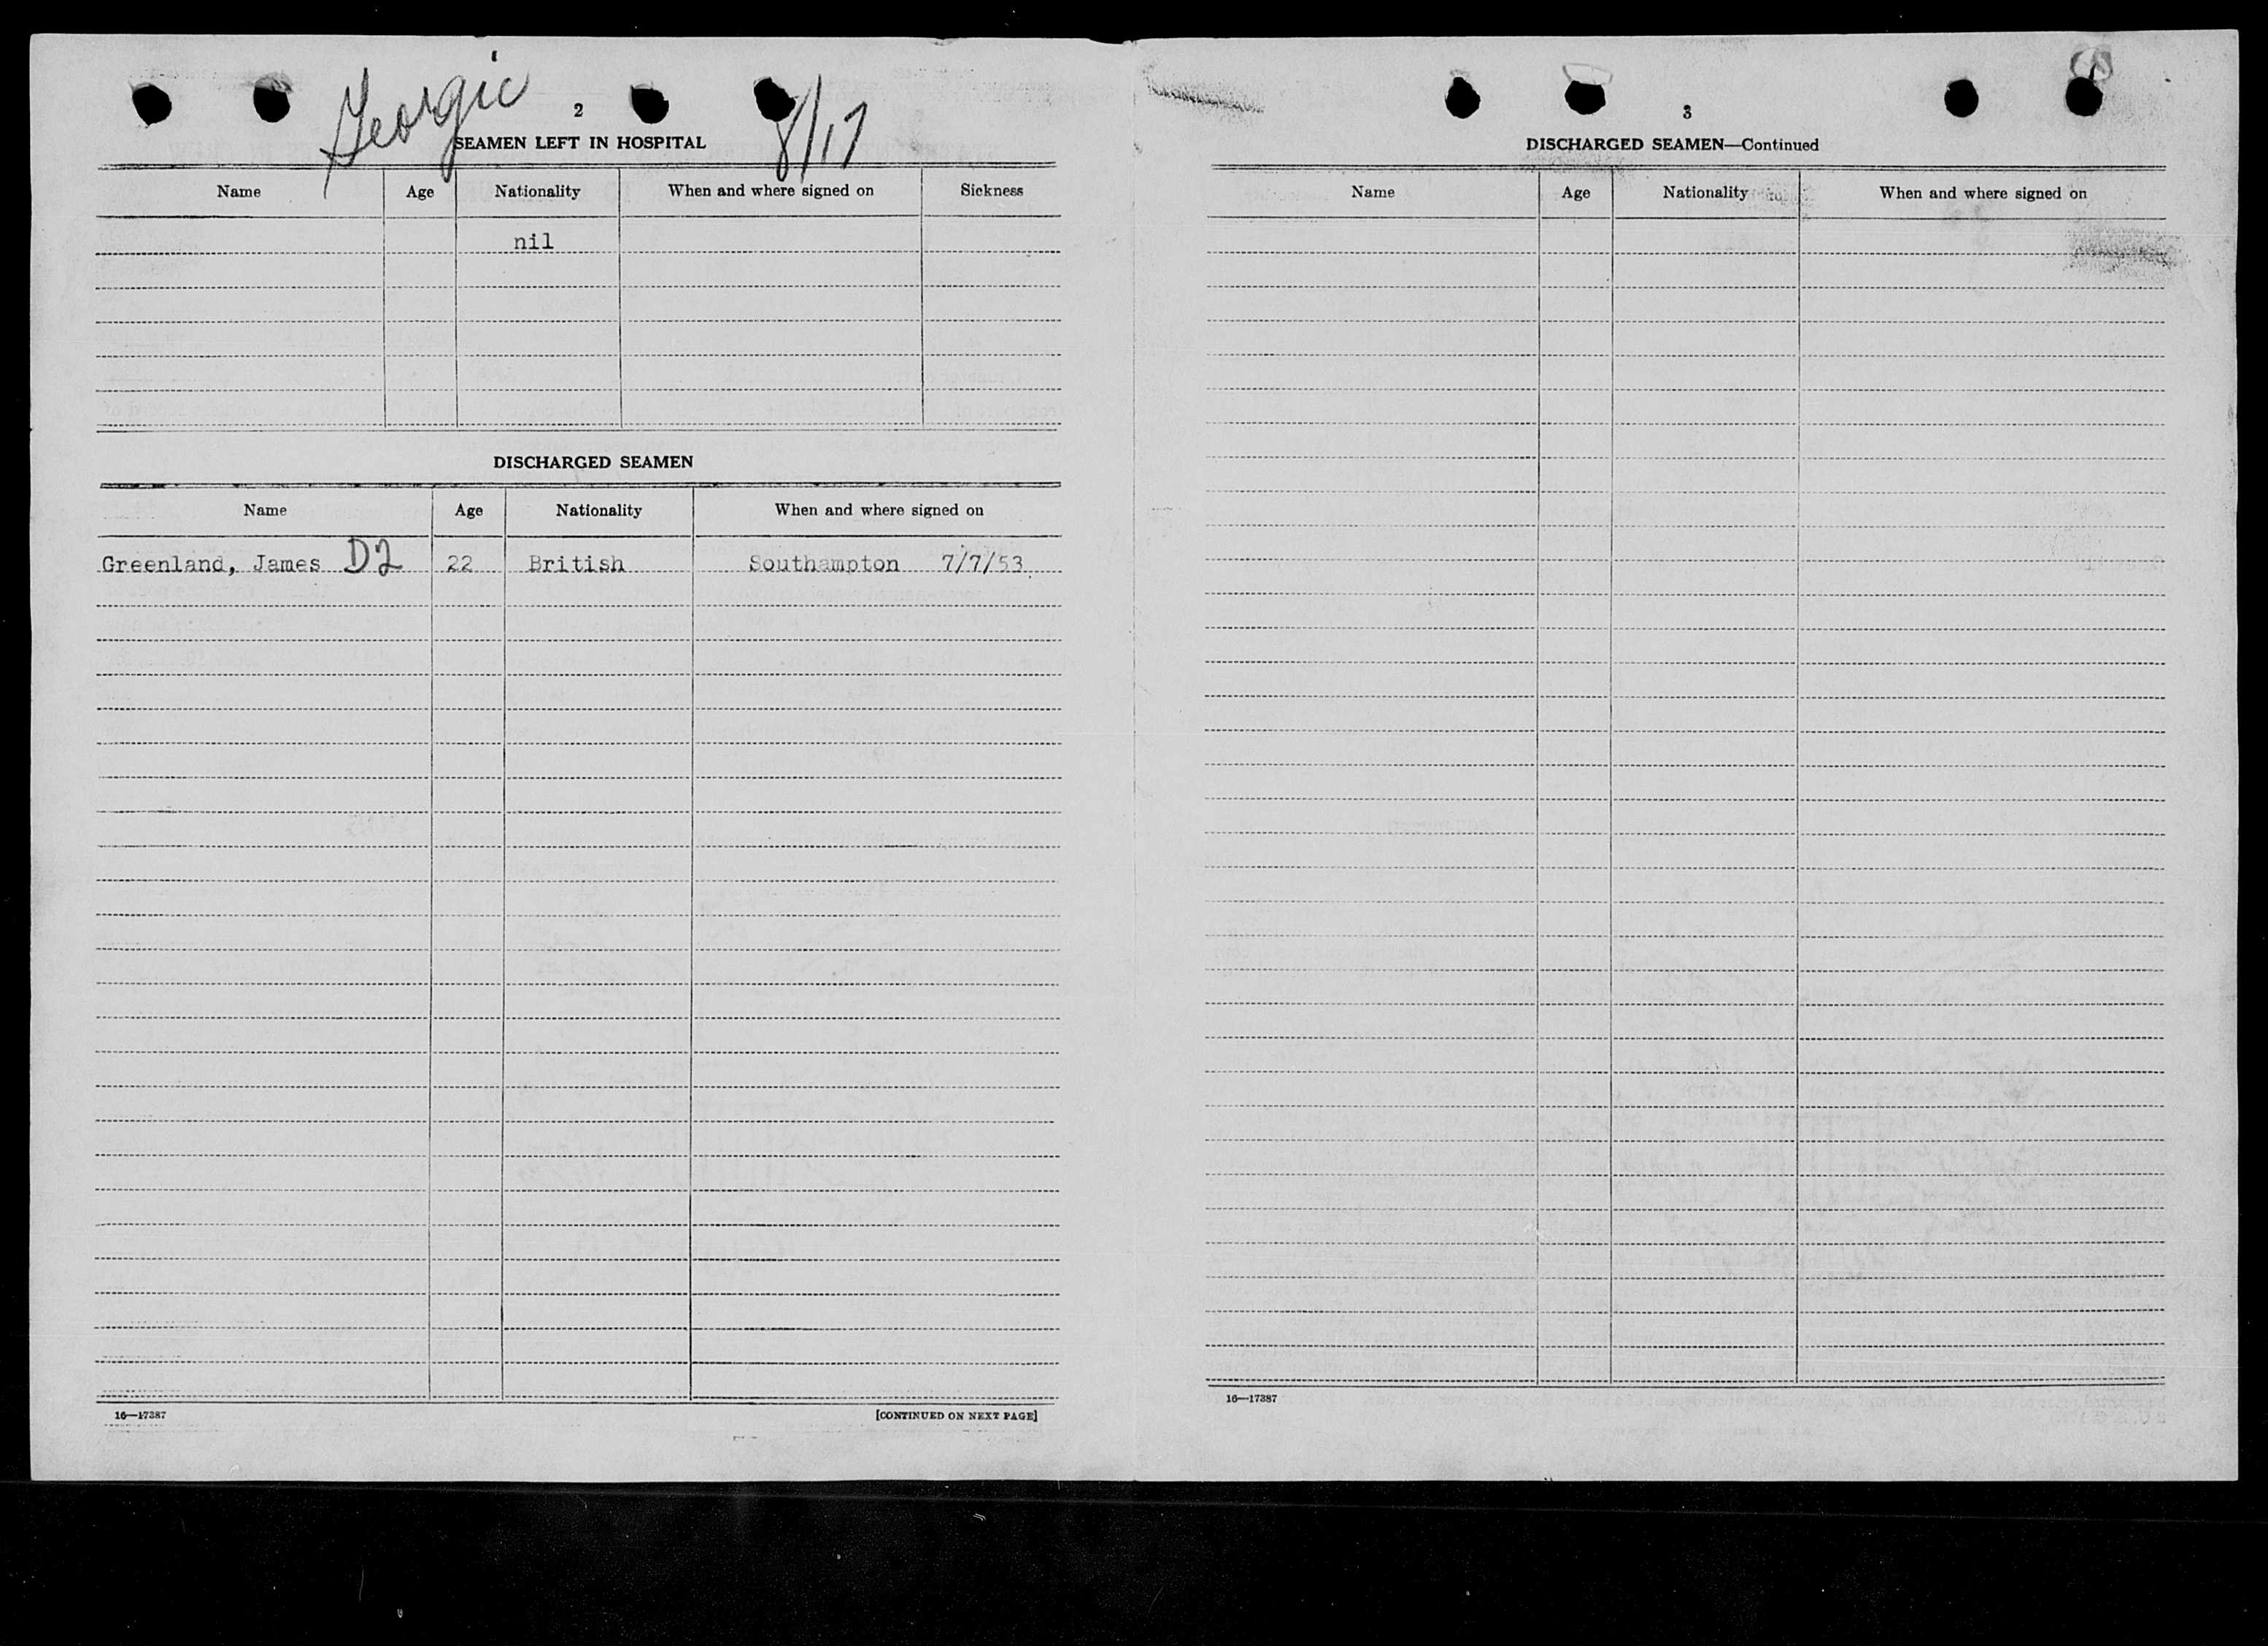 Georgic 8/17
2
SEAMEN LEFT IN HOSPITAL
Name Age Nationality When and where signed on Sickness
nil
DISCHARGED SEAMEN
Name Age Nationality When and where signed on
Greenland, James D2 22 British Southampton 7/7/53
16—17387 [CONTINUED ON NEXT PAGE]
3
DISCHARGED SEAMEN—Continued
Name Age Nationality When and where signed on
16—17387